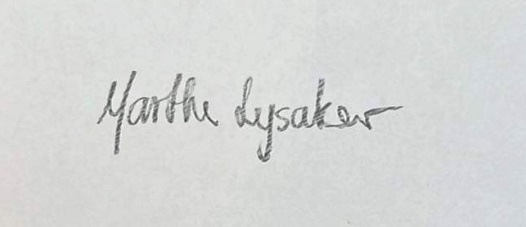 Marthe Lysaker